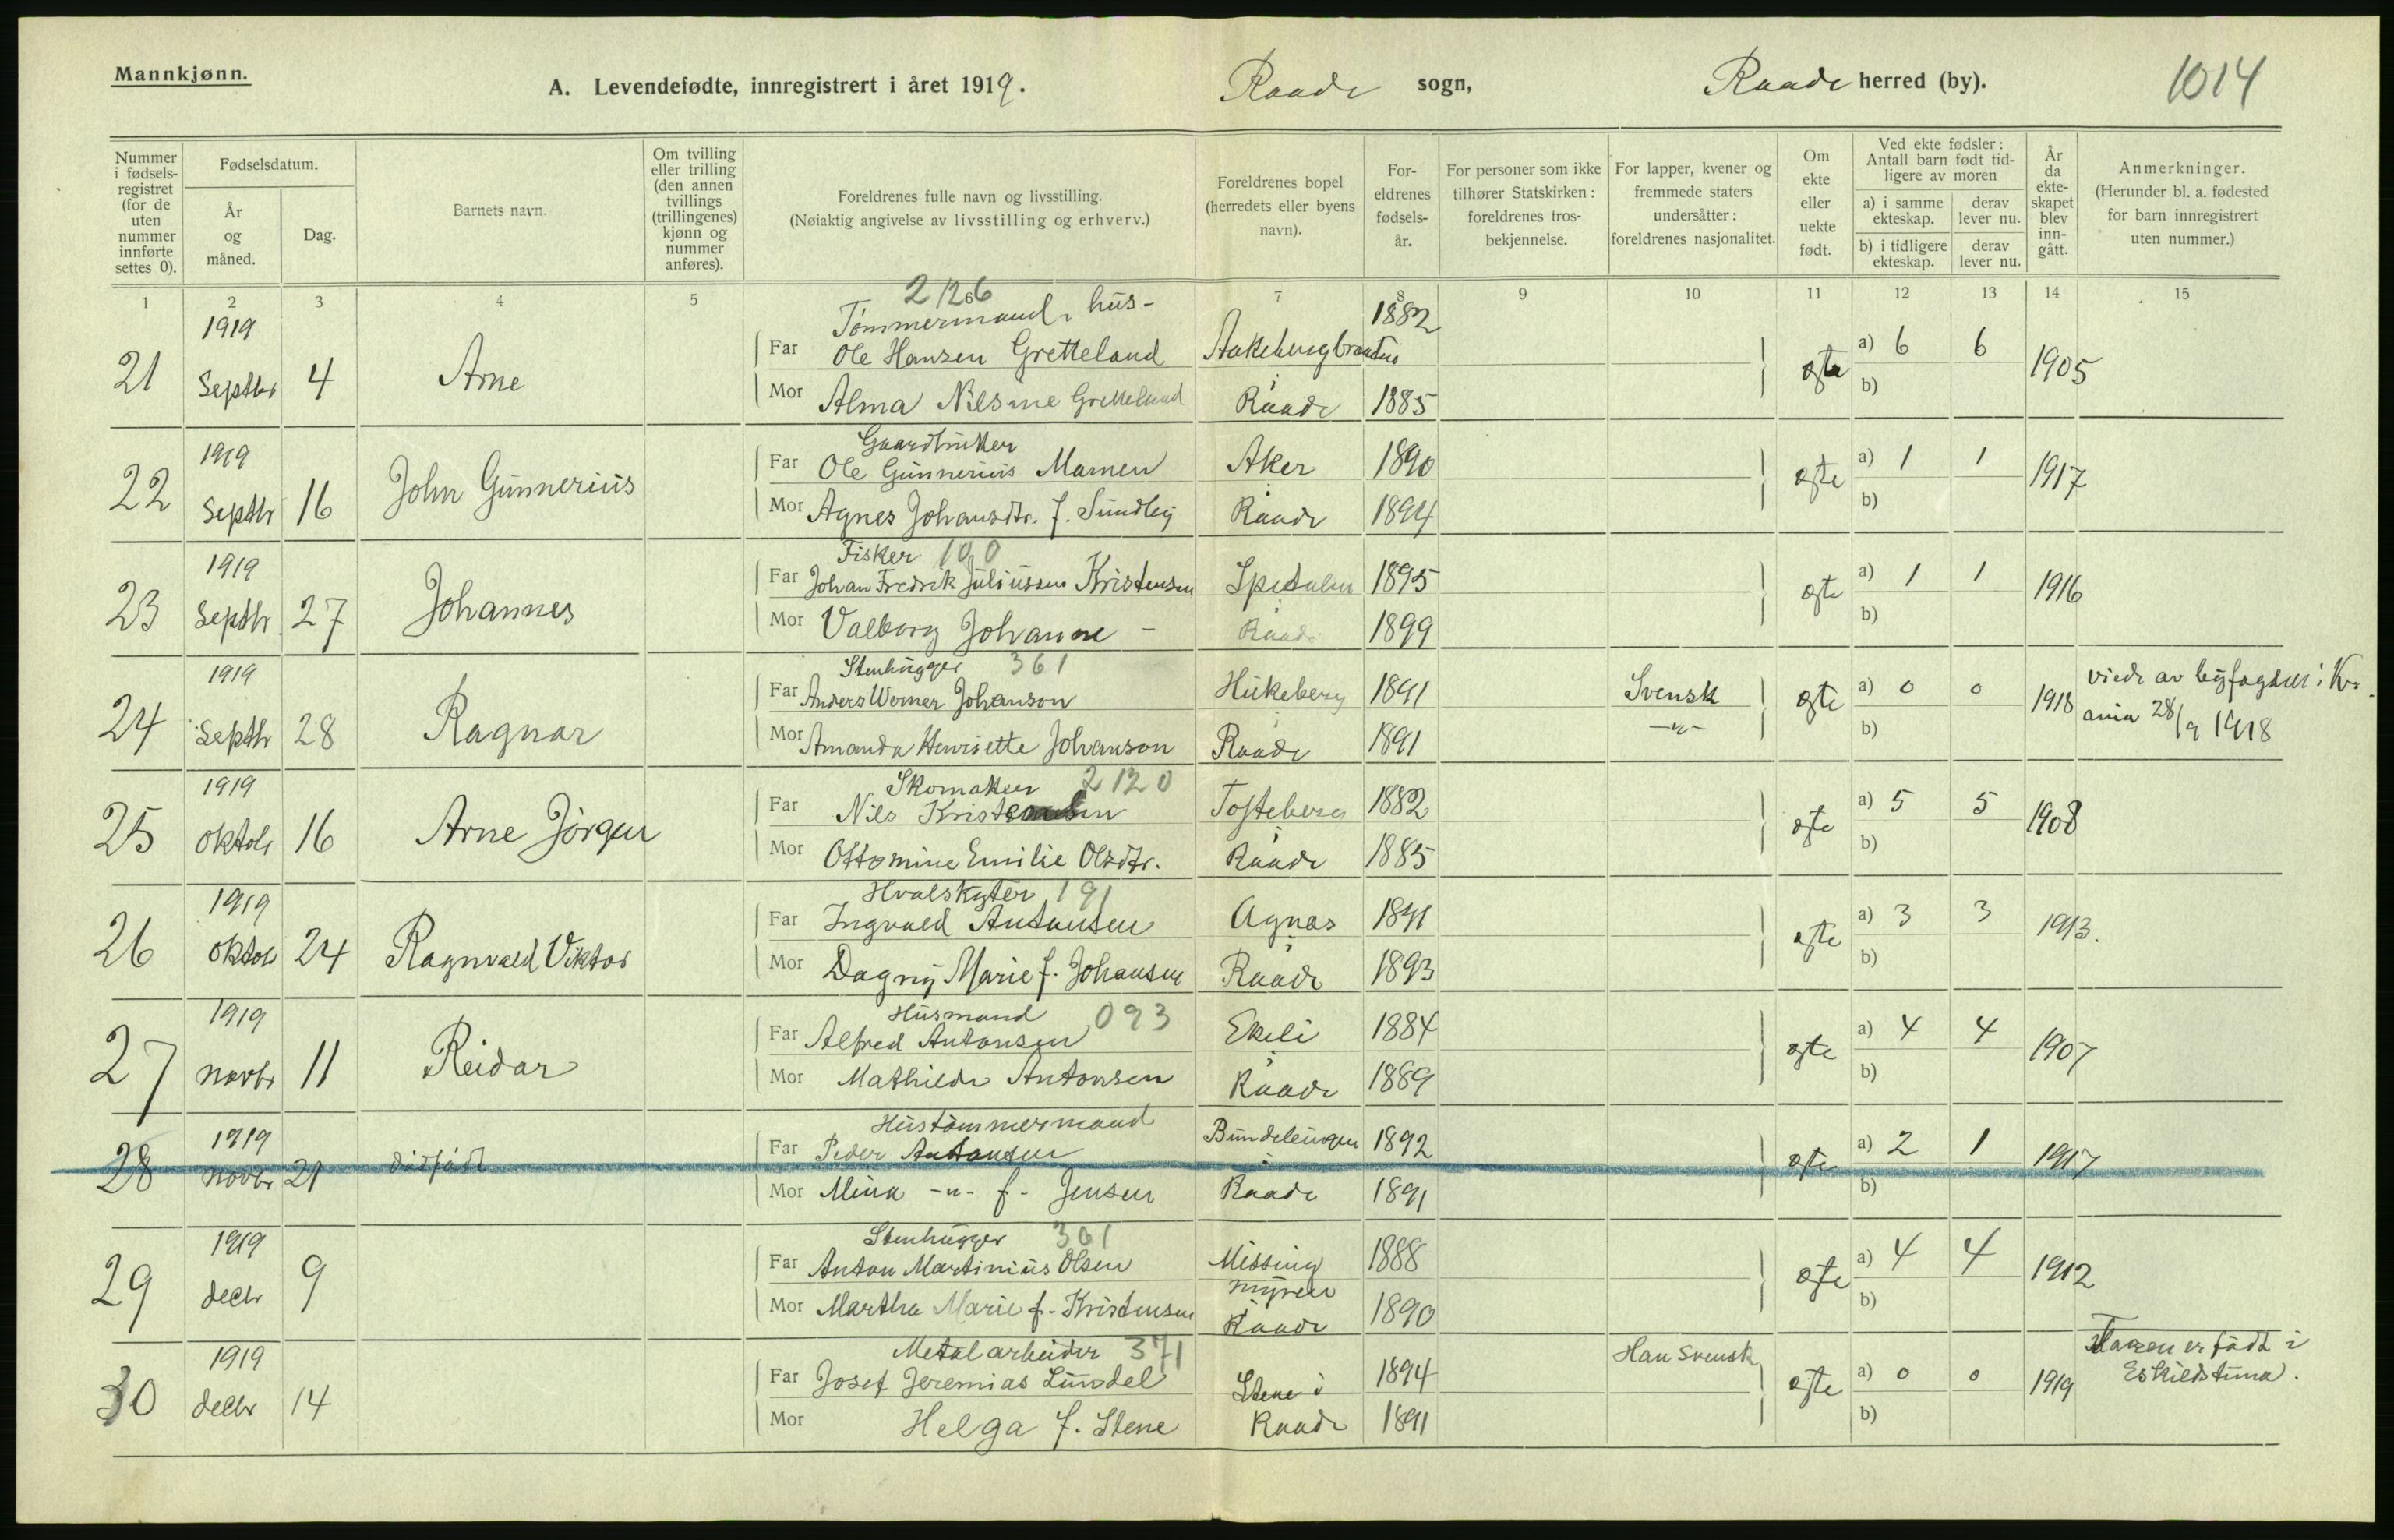 Mannkjønn.
A. Levendefødte, innregistrert i året 1919. Raade sogn, Raade herred (by). 1014
Nummer i fødsels-registret (for de uten nummer innførte settes 0).
Fødselsdatum.
År og måned.
Dag.
Barnets navn.
Om tvilling eller trilling (den annen tvillings (trillingenes) kjønn og nummer anføres).
Foreldrenes fulle navn og livsstilling.
(Nøiaktig angivelse av livsstilling og erhverv.)
Foreldrenes bopel (herredets eller byens navn).
For-eldrenes fødsels-år.
For personer som ikke tilhører Statskirken: foreldrenes tros-bekjennelse.
For lapper, kvener og fremmede staters undersåtter: foreldrenes nasjonalitet.
Om ekte eller uekte født.
Ved ekte fødsler: Antall barn født tid-ligere av moren
a) i samme ekteskap. derav lever nu.
b) i tidligere ekteskap. derav lever nu.
År da ekte-skapet blev inn-gått.
Anmerkninger.
(Herunder bl. a. fødested for barn innregistrert uten nummer.)
1 2 3 4 5 6 7 8 9 10 11 12 13 14 15
2 126
1919 Tømmermand, hus- 1882
21 Septbr 4 Arne Far Ole Hansen Gretteland Aakebergbraaten i ægte a) 6 6 1905
Mor Alma Nilsine Gretteland Raade 1885 b)
1919 Gaardbruker
22 Septbr 16 John Gunnerius Far Ole Gunnerius Mamen Aker i 1890 ægte a) 1 1 1917
Mor Agnes Johansdtr. f. Sundby Raade 1894 b)
1919 Fisker 100
23 Septbr. 27 Johannes Far Johan Fredrik Juliussen Kristensen Spetalen i 1895 ægte a) 1 1 1916
Mor Valborg Johanne - Raade 1899 b)
1919 Stenhugger 361
24 Septbr 28 Ragnar Far Anders Werner Johanson Hukeberg i 1891 Svensk ægte a) 0 0 1918 viede av byfogden i Kr.
Mor Amanda Henriette Johanson Raade 1891 -"- b) ania 28/9 1918
1919 Skomaker 2120
25 oktob 16 Arne Jørgen Far Nils Tofteberg i 1882 ægte a) 5 5 1908
Mor Ottomine Emilie Olsdtr. Raade 1885 b)
1919 Hvalskyter 191
26 oktob 24 Ragnvald Viktor Far Ingvald Antonsen Agnæs i 1891 ægte a) 3 3 1913.
Mor Dagny Marie f. Johansen Raade 1893 b)
1919 Husmand 093
27 novbr 11 Reidar Far Alfred Antonsen Ekeli i 1884 ægte a) 4 4 1907
Mor Mathilde Antonsen Raade 1889 b)
1919 Hustømmermand
28 novbr 21 dødfødt Far Peder Antonsen 1892 ægte a) 2 1 1917
Mor Mina -"- f. Jensen Raade 1891 b)
1919 Stenhugger 361
29 decbr 9 Far Anton Martinius Olsen Missing myren i 1888 ægte a) 4 4 1912
Mor Martha Marie f. Kristensen Raade 1890 b)
1919 Metalarbeider 371 Han svensk
30 decbr 14 Far Josef Jeremias Lundel Stene i 1894 ægte a) 0 0 1919 Faren er født i
Mor Helga f. Stene Raade 1891 b) Eskildstuna.